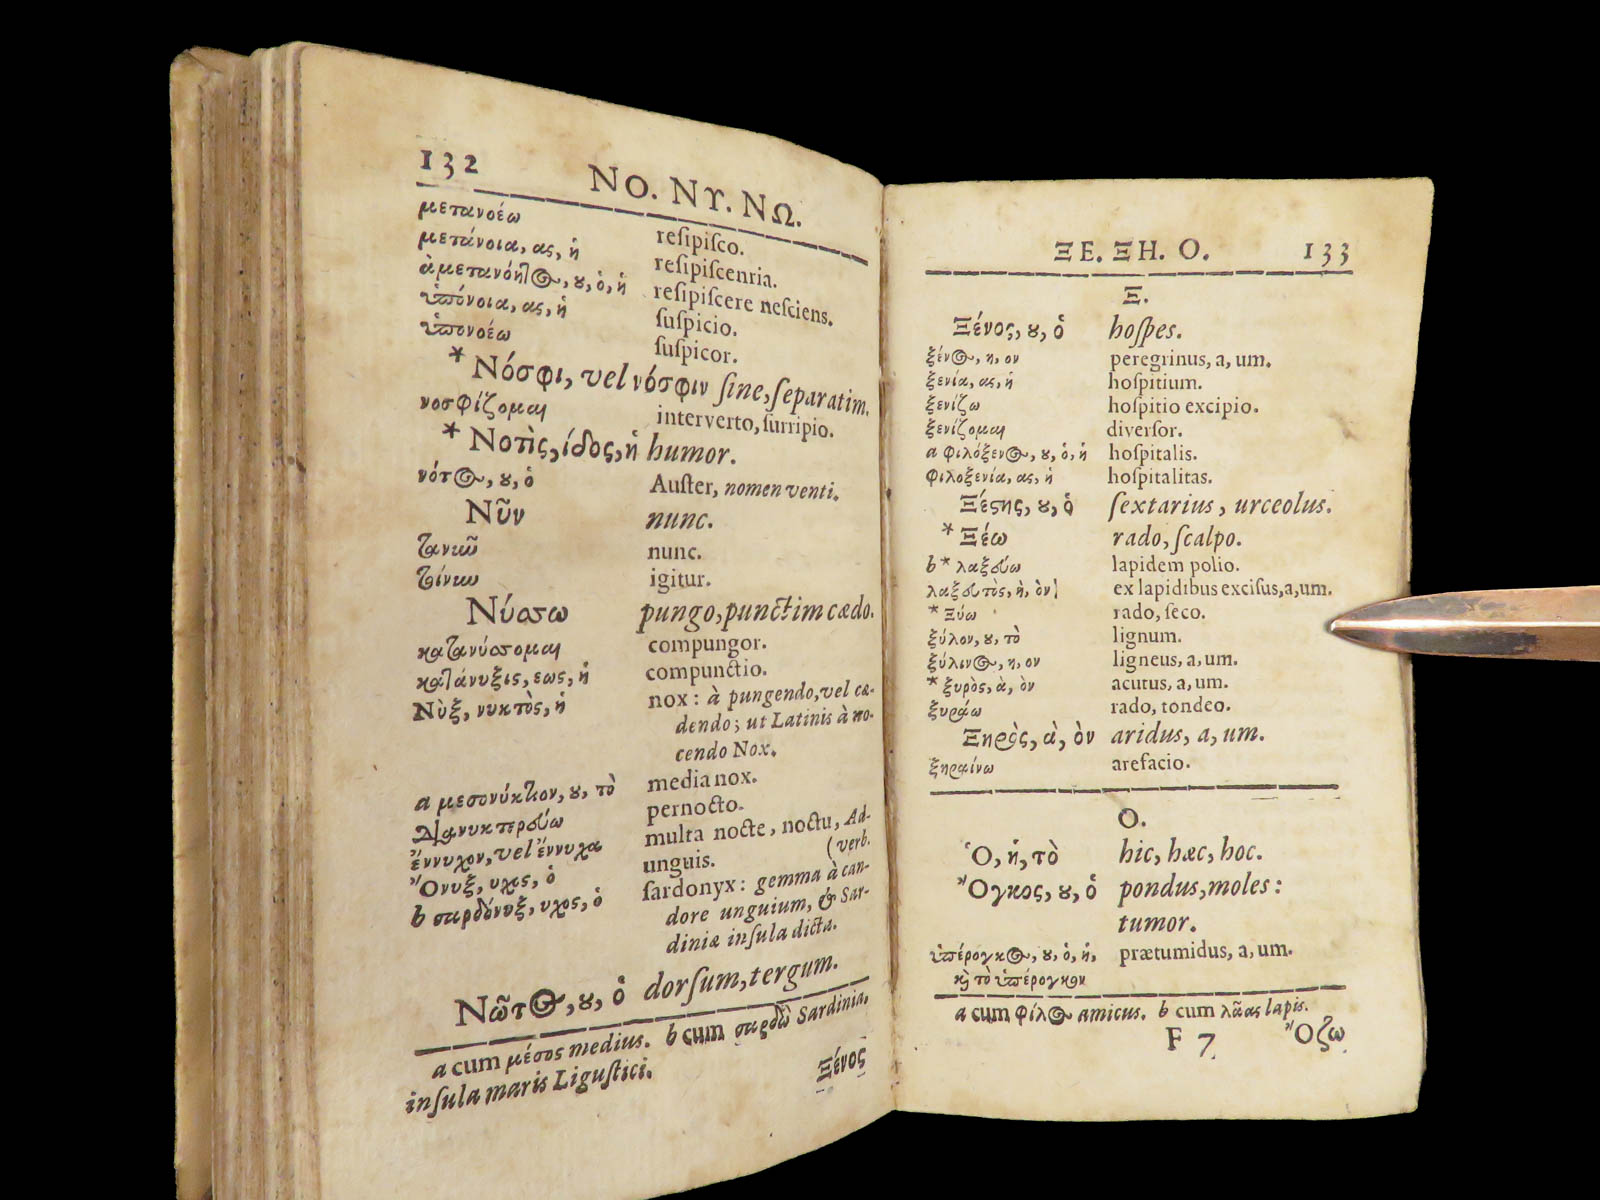 132 ΝΟ. ΝΥ. ΝΩ.
μετανοέω resipisco.
μετάνοια, ας, ἡ resipiscenria.
ἀμετανόητος, ου, ὁ, ἡ resipiscere nesciens.
ὑπόνοια, ας, ἡ suspicio.
ὑπονοέω suspicor.
* Νόσφι, vel νόσφιν ſine, ſeparatim.
νοσφίζομαι interverto, ſurripio.
* Νοτὶς, ίδος, ἡ humor.
νότος, ου, ὁ Auſter, nomen venti.
Νῦν nunc.
τανῦν nunc.
τοίνυν igitur.
Νύσσω pungo, punctim cædo.
κατανύσσομαι compungor.
κατάνυξις, εως, ἡ compunctio.
Νὺξ, νυκτὸς, ἡ nox: à pungendo, vel cæ-
dendo; ut Latinis à no-
cendo Nox.
a μεσονύκτιον, ου, τὸ media nox.
διανυκτερεύω pernocto.
ἔννυχον, vel ἔννυχα multa nocte, noctu, Ad-
(verb.
Ὄνυξ, υχος, ὁ unguis.
b σαρδόνυξ, υχος, ὁ ſardonyx: gemma à can-
dore unguium, & Sar-
diniæ inſula dicta.
Νῶτος, ου, ὁ dorſum, tergum.
a cum μέσος medius. b cum σαρδὼ Sardinia,
inſula maris Liguſtici.
Ξένος
ΞΕ. ΞΗ. Ο. 133
Ξ.
Ξένος, ου, ὁ hoſpes.
ξένος, η, ον peregrinus, a, um.
ξενία, ας, ἡ hoſpitium.
ξενίζω hoſpitio excipio.
ξενίζομαι diverſor.
a φιλόξενος, ου, ὁ, ἡ hoſpitalis.
φιλοξενία, ας, ἡ hoſpitalitas.
Ξέστης, ου, ὁ ſextarius, urceolus.
* Ξέω rado, ſcalpo.
b * λαξεύω lapidem polio.
λαξευτὸς, ὴ, ὸν ex lapidibus exciſus, a, um.
* Ξύω rado, ſeco.
ξύλον, ου, τὸ lignum.
ξύλινος, η, ον ligneus, a, um.
* ξυρὸς, ὰ, ὸν acutus, a, um.
ξυράω rado, tondeo.
Ξηρὸς, ὰ, ὸν aridus, a, um.
ξηραίνω arefacio.
Ο.
Ὁ, ἡ, τὸ hic, hæc, hoc.
Ὄγκος, ου, ὁ pondus, moles:
tumor.
ὑπέρογκος, ου, ὁ, ἡ, prætumidus, a, um.
καὶ τὸ ὑπέρογκον
a cum φίλος amicus. b cum λᾶας lapis.
F 7 Ὄζω